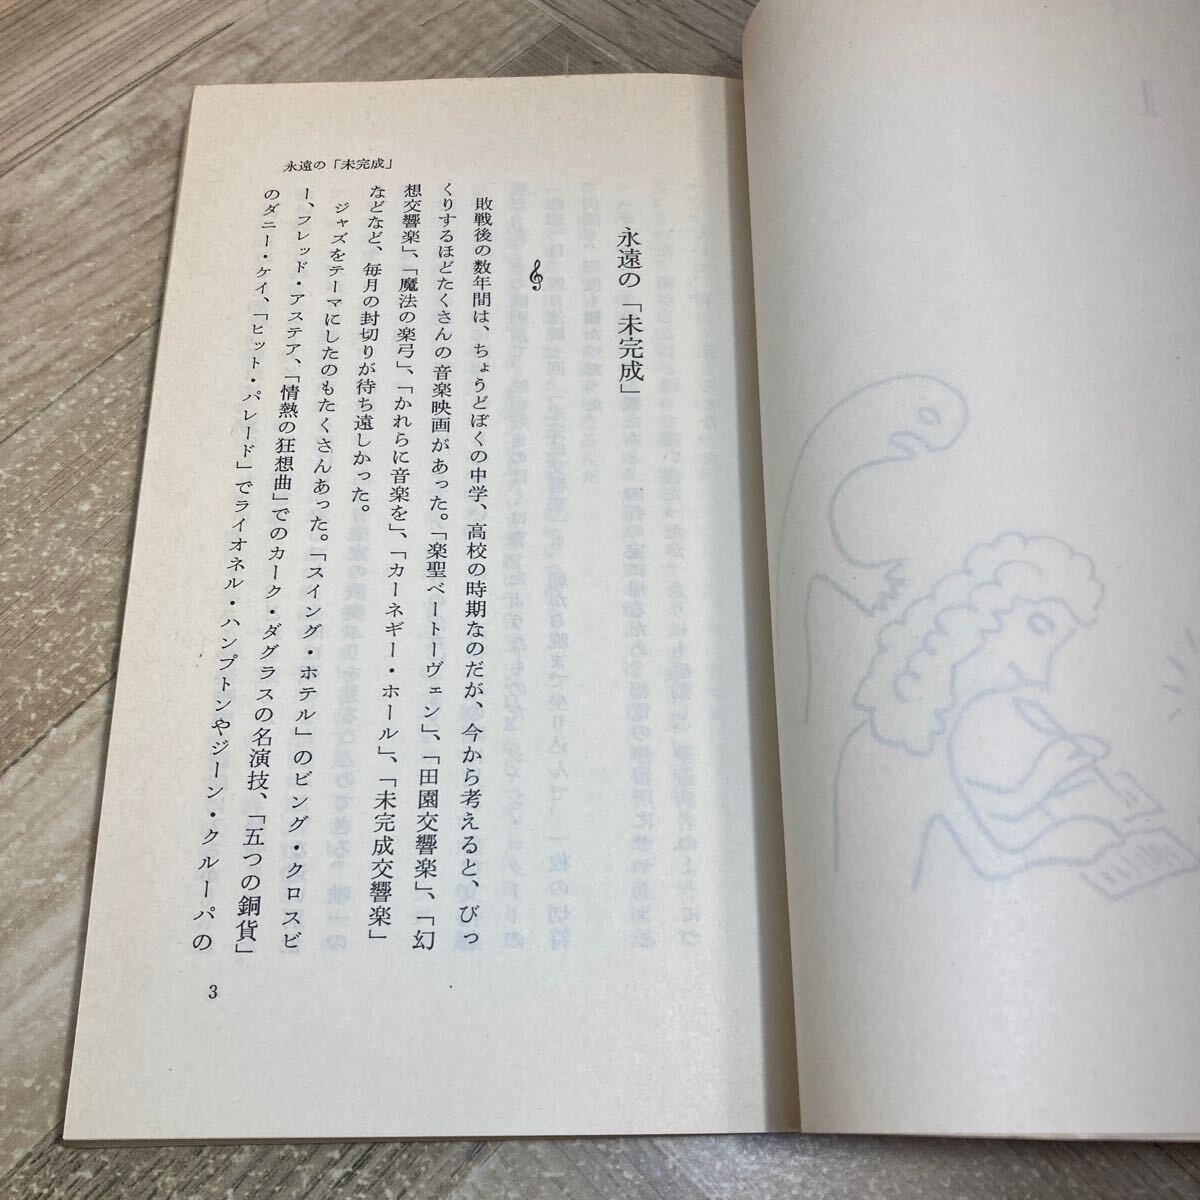 永遠の「未完成」
永遠の「未完成」
敗戦後の数年間は、ちょうどぼくの中学、高校の時期なのだが、今から考えると、びっ
くりするほどたくさんの音楽映画があった。「楽聖ベートーヴェン」、「田園交響楽」、「幻
想交響楽」、「魔法の楽弓」、「かれらに音楽を」、「カーネギー・ホール」、「未完成交響楽」
などなど、毎月の封切りが待ち遠しかった。
ジャズをテーマにしたのもたくさんあった。「スイング・ホテル」のビング・クロスビ
ー、フレッド・アステア、「情熱の狂想曲」でのカーク・ダグラスの名演技、「五つの銅貨」
のダニー・ケイ、「ヒット・パレード」でライオネル・ハンプトンやジーン・クルーパの
3